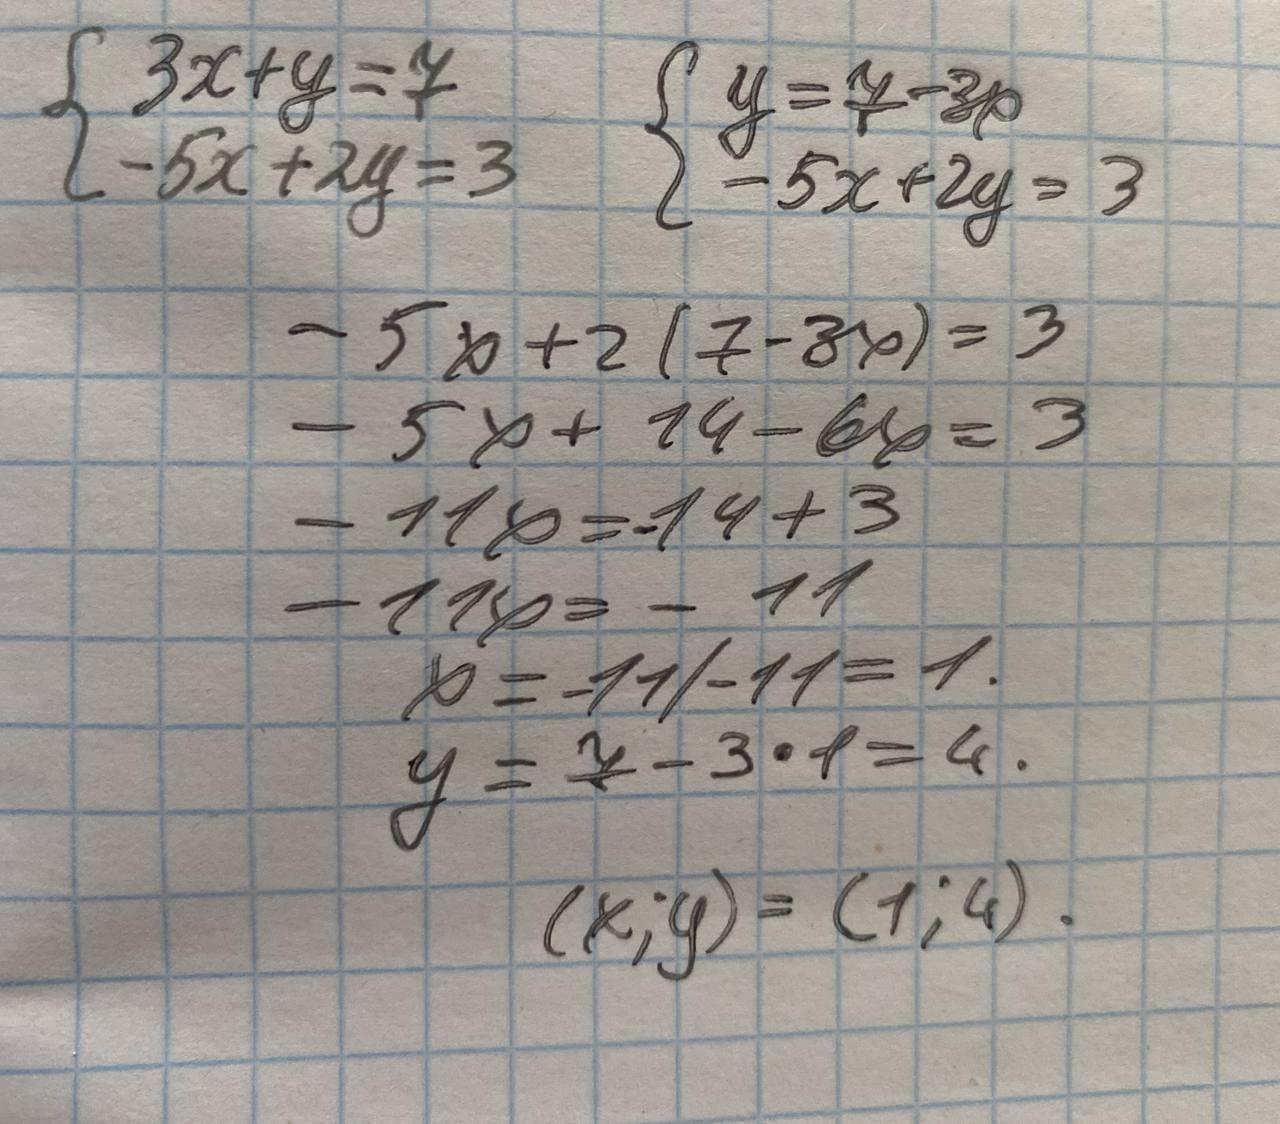 { 3x+y=7
-5x+2y=3
{ y=7-3x
-5x+2y=3
-5x+2(7-3x)=3
-5x+14-6x=3
-11x=-14+3
-11x=-11
x=-11/-11=1.
y=7-3•1=4.
(x;y)=(1;4).